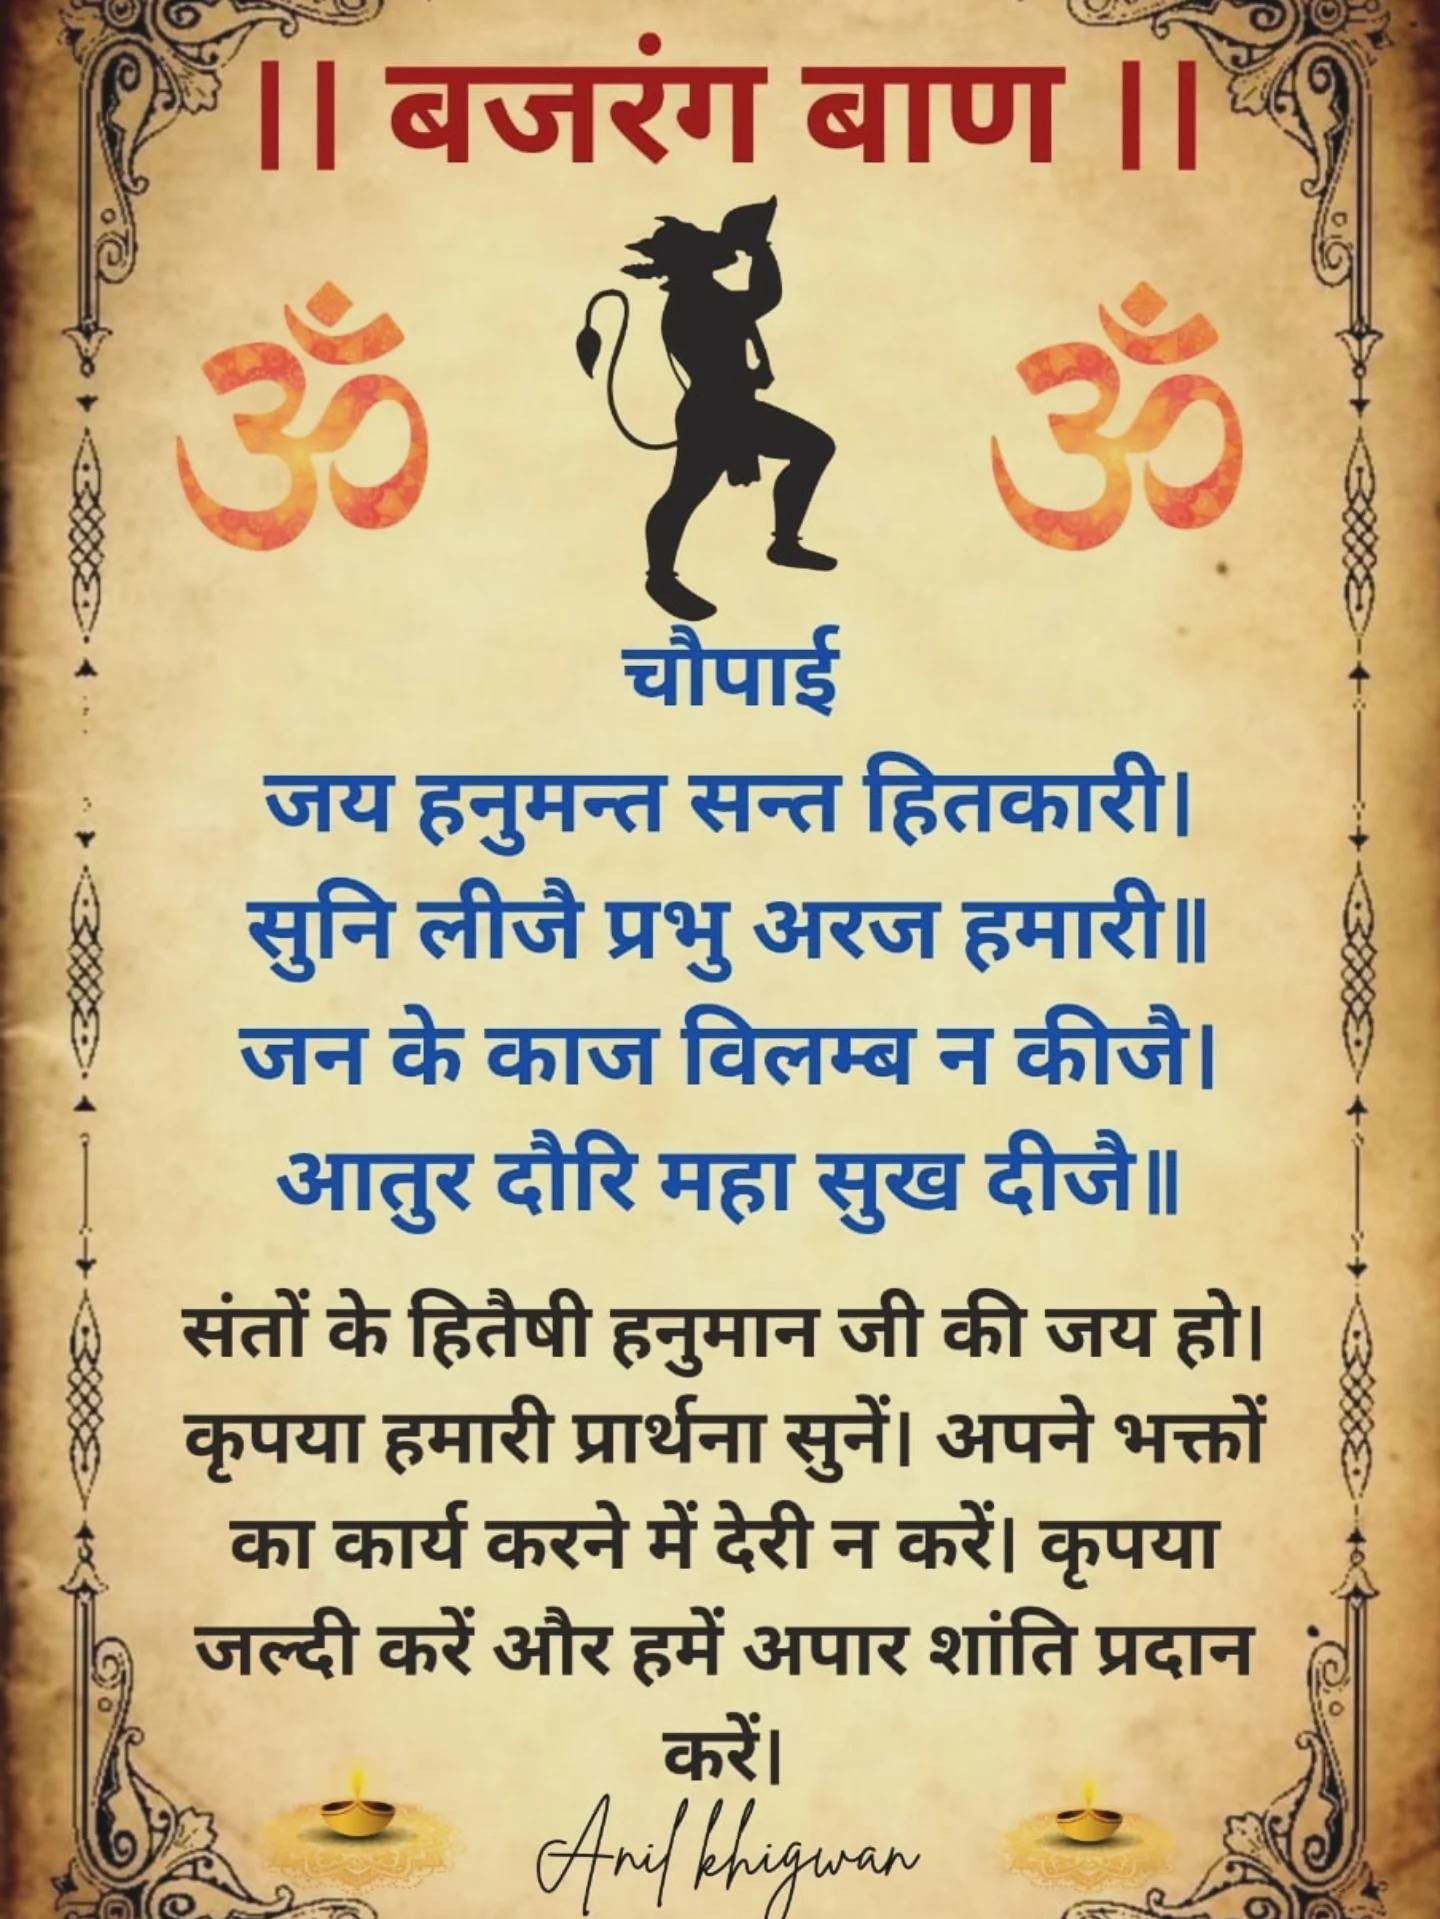 || बजरंग बाण ||
ॐ ॐ
चौपाई
जय हनुमन्त सन्त हितकारी।
सुनि लीजै प्रभु अरज हमारी॥
जन के काज विलम्ब न कीजै।
आतुर दौरि महा सुख दीजै॥
संतों के हितैषी हनुमान जी की जय हो।
कृपया हमारी प्रार्थना सुनें। अपने भक्तों
का कार्य करने में देरी न करें। कृपया
जल्दी करें और हमें अपार शांति प्रदान
करें।
Anil khigwan